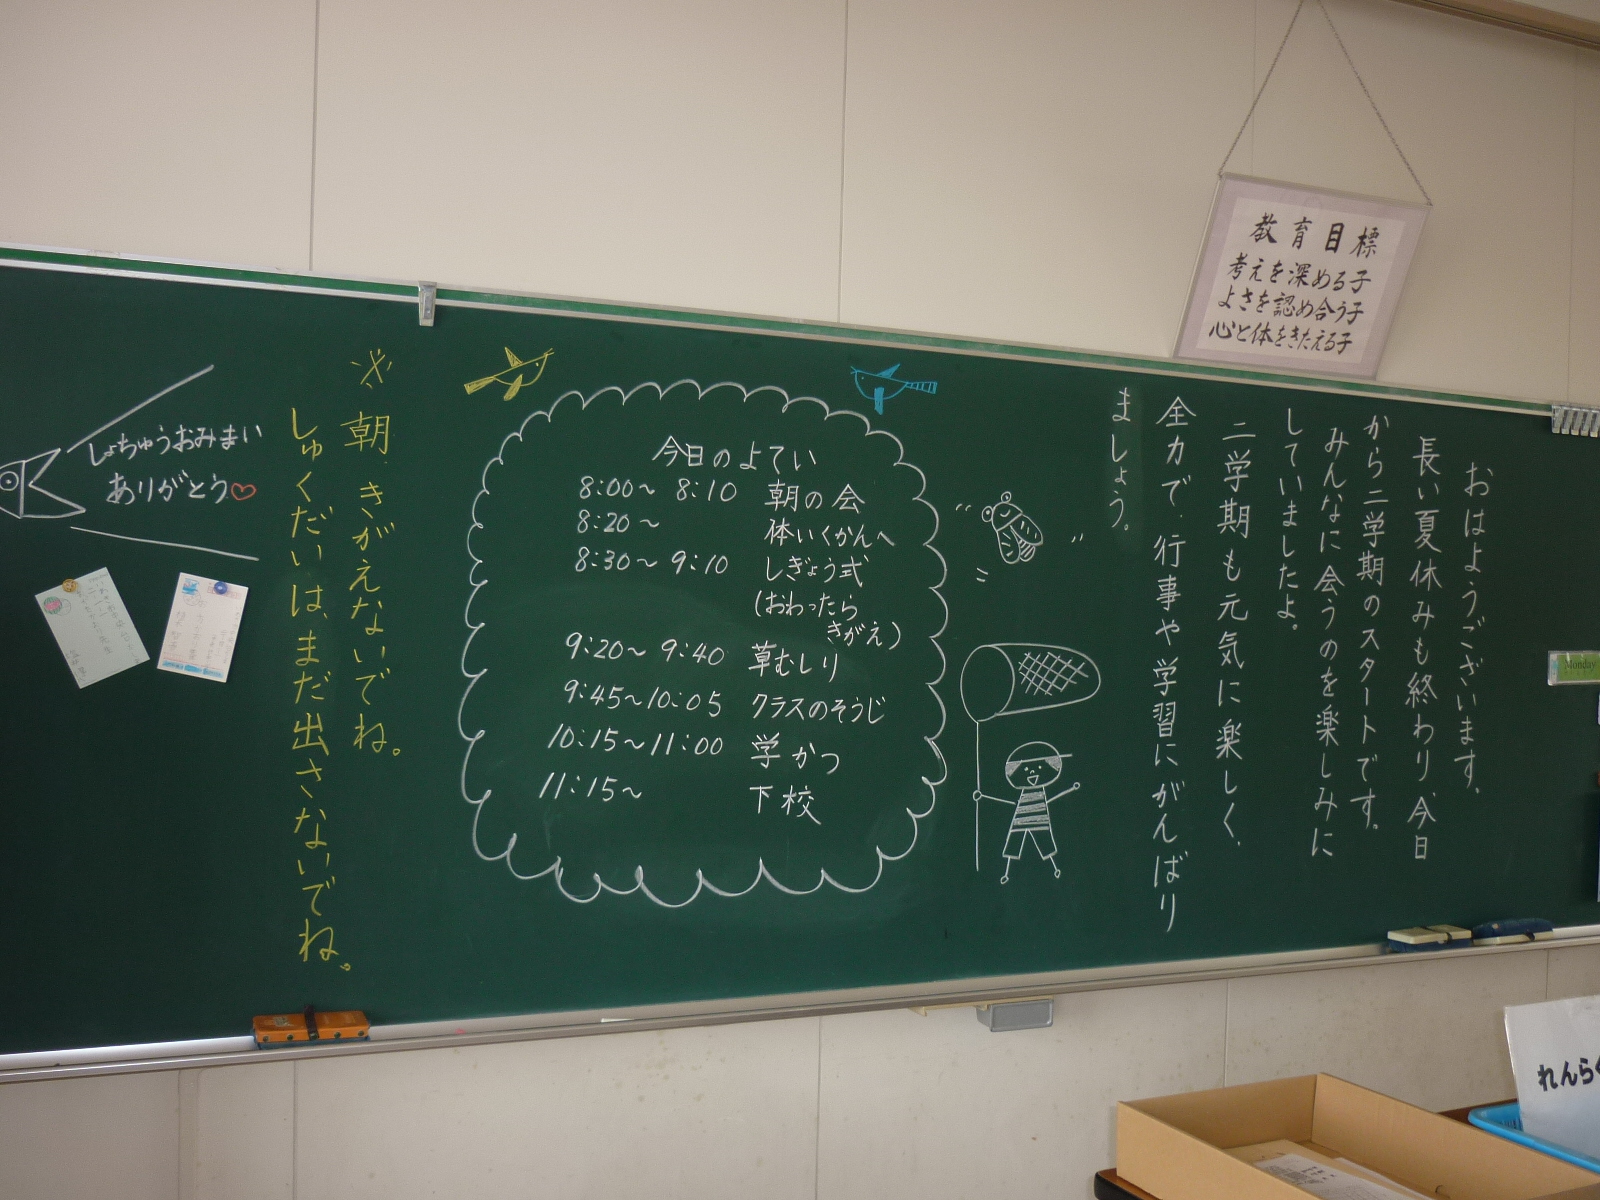 教育目標
考えを深める子
よさを認め合う子
心と体をきたえる子
おはようございます。
長い夏休みも終わり、今日
から二学期のスタートです。
みんなに会うのを楽しみに
していましたよ。
二学期も元気に楽しく、
全力で、行事や学習にがんばり
ましょう。
今日のよてい
8:00~ 8:10 朝の会
8:20~ 体いくかんへ
8:30~ 9:10 しぎょう式
(おわったら
きがえ)
9:20~ 9:40 草むしり
9:45~10:05 クラスのそうじ
10:15~11:00 学かつ
11:15~ 下校
※朝、きがえないでね。
しゅくだいは、まだ出さないでね。
しょちゅうおみまい
ありがとう♡
Monday
れんらく